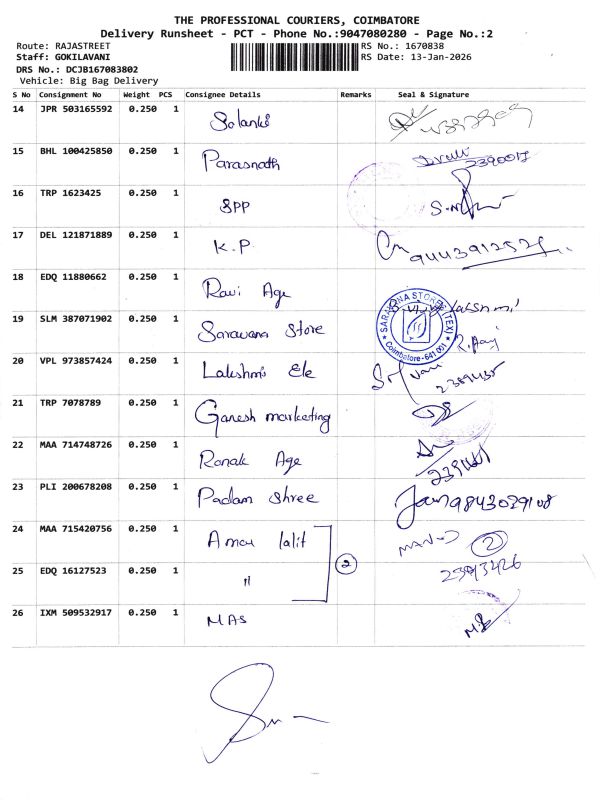 THE PROFESSIONAL COURIERS, COIMBATORE
Delivery Runsheet - PCT - Phone No.:9047080280 - Page No.:2
Route: RAJASTREET
RS No.: 1670838
Staff: GOKILAVANI
RS Date: 13-Jan-2026
DRS No.: DCJB167083802
Vehicle: Big Bag Delivery
S No Consignment No Weight PCS Consignee Details Remarks Seal & Signature
14 JPR 503165592 0.250 1 Solanki
15 BHL 100425850 0.250 1 Parasnath
16 TRP 1623425 0.250 1 SPP
17 DEL 121871889 0.250 1 K.P
18 EDQ 11880662 0.250 1 Ravi Age
19 SLM 387071902 0.250 1 Saravana Store
SARAVANA STORE (TEX)
Coimbatore-641 001
20 VPL 973857424 0.250 1 Lakshmi Ele 2389435
21 TRP 7078789 0.250 1 Ganesh marketing
22 MAA 714748726 0.250 1 Ronak Age
23 PLI 200678208 0.250 1 Padam Shree 9843029108
24 MAA 715420756 0.250 1 Amou lalit 2
25 EDQ 16127523 0.250 1 " 2
26 IXM 509532917 0.250 1 MAS